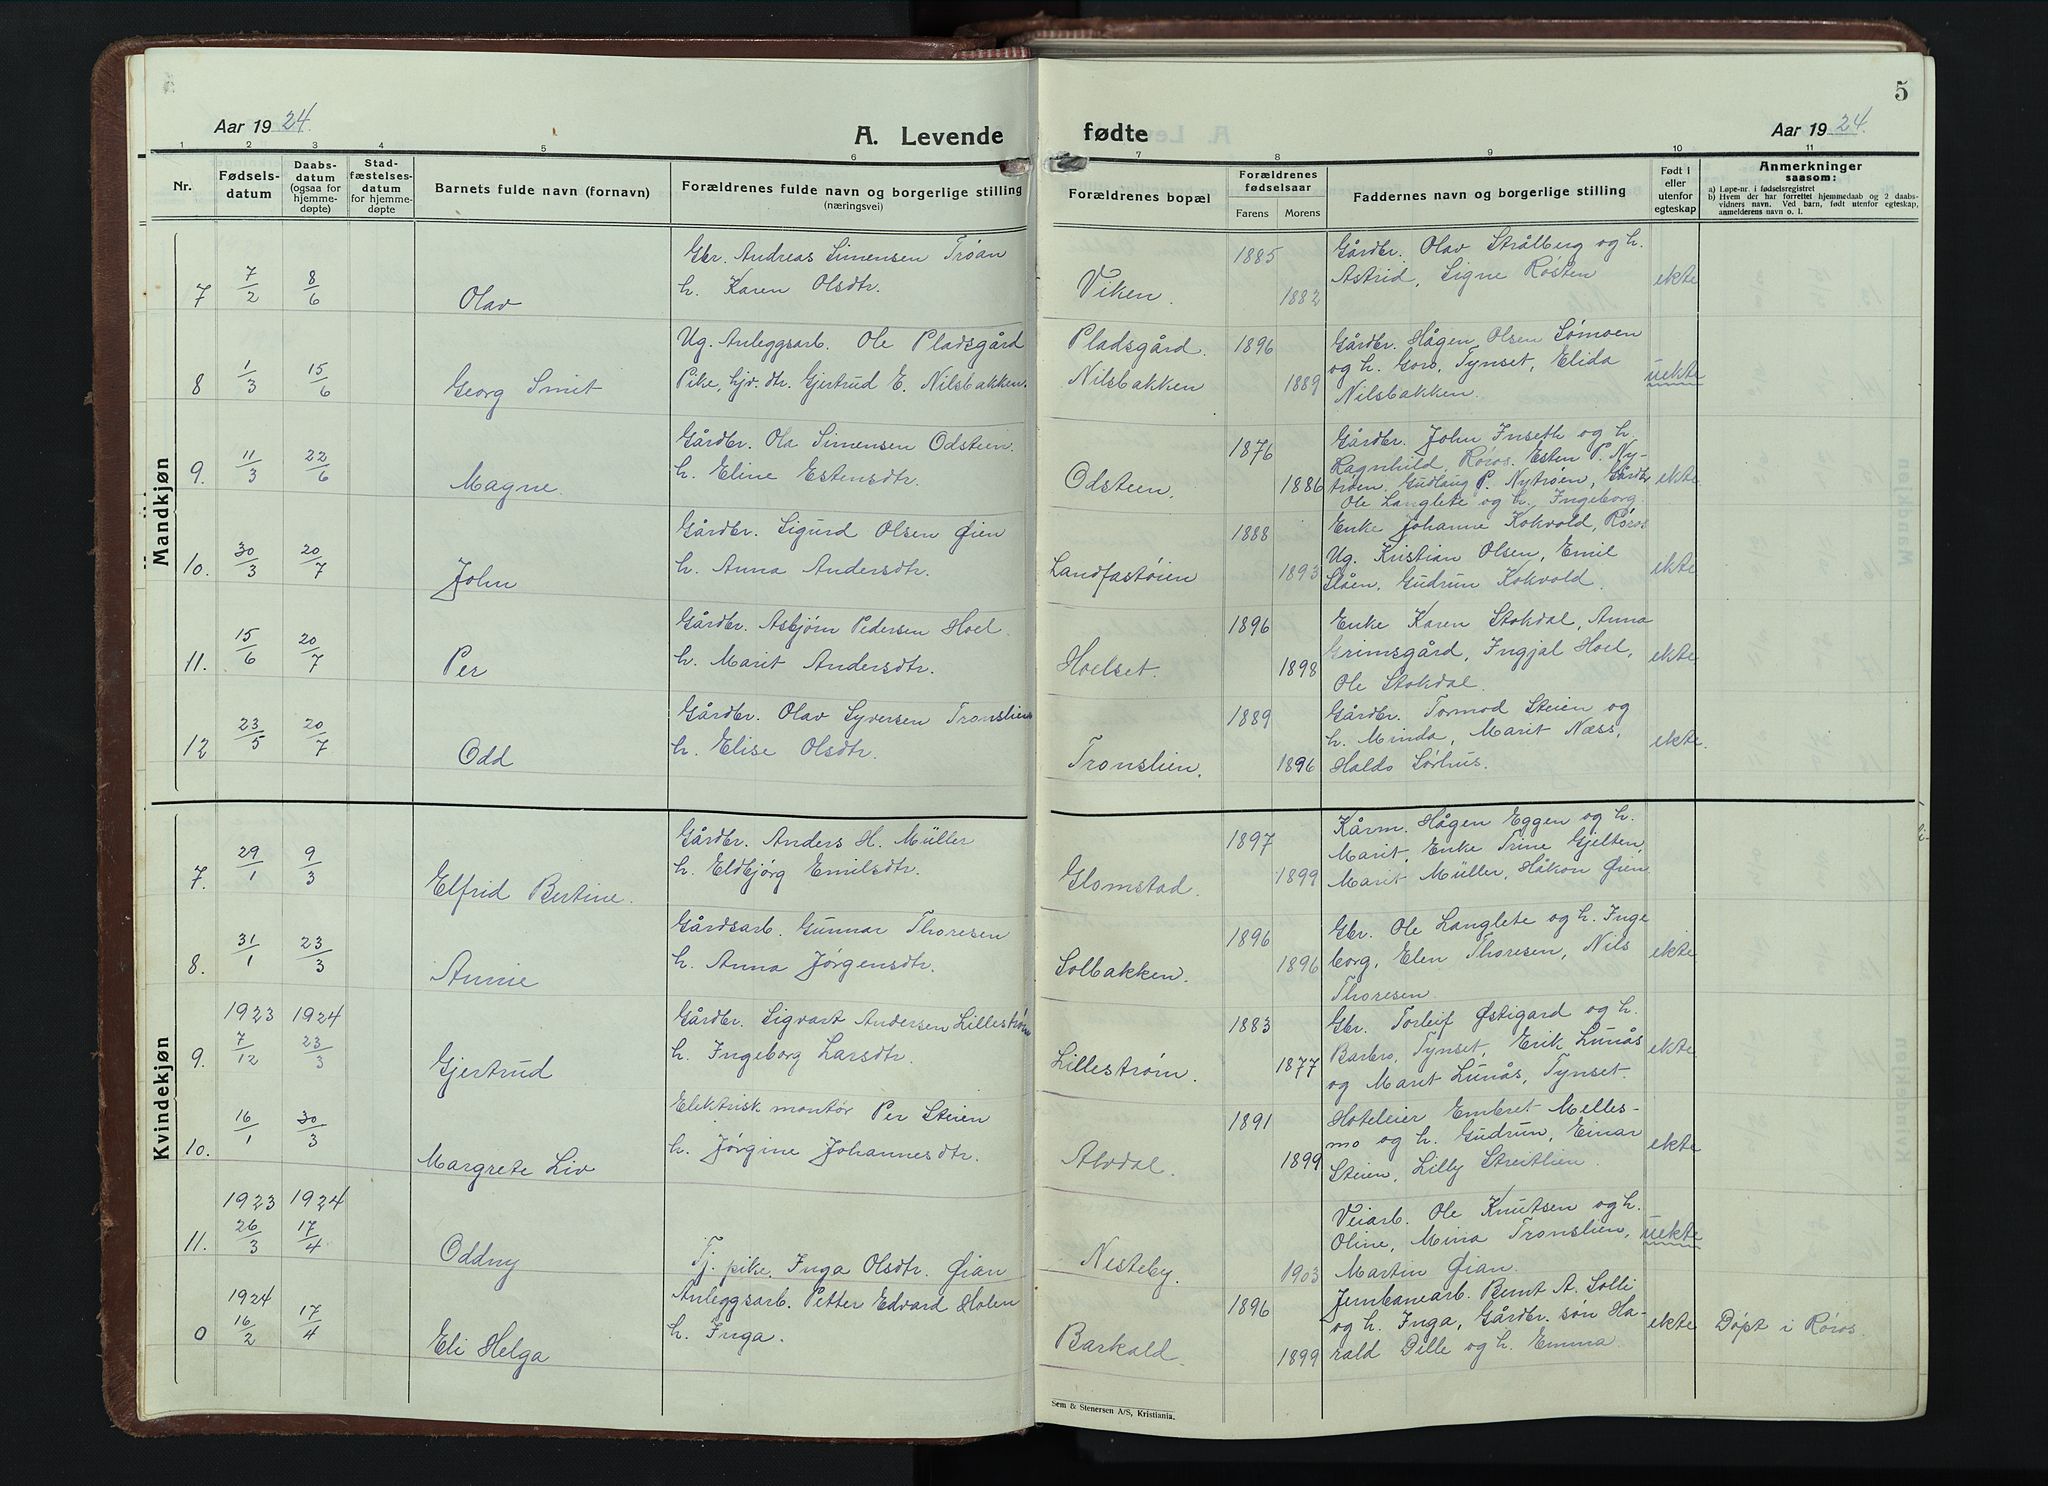 5
Aar 1924.
A. Levende
fødte
Aar 1924.
1 2 3 4 5 6 7 8 9 10 11
Nr.
Fødsels-
datum
Daabs-
datum
(ogsaa for
hjemme-
døpte)
Stad-
fæstelses-
datum
for hjemme-
døpte
Barnets fulde navn (fornavn)
Forældrenes fulde navn og borgerlige stilling
(næringsvei)
Forældrenes bopæl
Forældrenes
fødselsaar
Farens Morens
Faddernes navn og borgerlige stilling
Født i
eller
utenfor
egteskap
Anmerkninger
saasom:
a) Løpe-nr. i fødselsregistret
b) Hvem der har forrettet hjemmedaab og 2 daabs-
vidners navn. Ved barn, født utenfor egteskap,
anmelderens navn o. l.
Mandkjøn
7 7/2 8/6 Olav
Gbr. Andreas Simensen Trøan
h. Karen Olsdtr.
Viken. 1885 1882
Gårdbr. Olav Strålberg og h.
Astrid, Signe Røsten
ekte
8 1/3 15/6 Georg Smit
Ug. Anleggsarb. Ole Pladsgård
Pike, hjv. dtr. Gjertrud E. Nilsbakken.
Pladsgård.
Nilsbakken
1896 1889
Gårdbr. Hågen Olsen Sømoen
og h. Goro, Tynset, Elida
Nilsbakken.
uekte
9. 11/3 22/6 Magne.
Gårdbr. Ola Simensen Odsteen.
h. Eline Estensdtr.
Odsteen. 1876 1886
Gårdbr. John Inseth og h.
Ragnhild, Røros. Esten P. Ny-
trøen, Gudlaug P. Nytrøen, Gårdbr
Ole Langlete og h. Ingeborg.
ekte
10. 30/3 20/7 John
Gårdbr. Sigurd Olsen Øien
h. Anna Andersdtr.
Landfastøien 1888 1893
Enke Johanne Kokvold, Røros
Ug. Kristian Olsen, Emil
Slåen, Gudrun Kokvold.
ekte
11. 15/6 20/7 Per
Gårdbr. Asbjørn Pedersen Hoel.
h. Marit Andersdtr.
Hoelset. 1896 1898
Enke Karen Stokdal, Anna
Grimsgård, Ingjal Hoel,
Ole Stokdal.
ekte
12 23/5 20/7 Odd
Gårdbr. Olav Syversen Tronslien
h. Elise Olsdtr.
Tronslien. 1889 1896
Gårdbr. Tormod Steien og
h. Minda, Marit Næss,
Haldo Sørhus.
ekte.
Kvindekjøn
7. 29/1 9/3 Elfrid Bertine.
Gårdbr. Anders H. Müller
h. Eldbjørg Emilsdtr.
Glomstad. 1897 1899
Kårm. Hågen Eggen og h.
Marit, Enke Trine Gjelten,
Marit Müller, Håkon Øien
8. 31/1 23/3 Annie
Gårdsarb. Gunnar Thoresen
h. Anna Jørgensdtr.
Solbakken. 1896 1896
Gbr. Ole Langlete og h. Inge
borg, Elen Thoresen, Nils
Thoresen
ekte
9. 1923 7/12 1924 23/3 Gjertrud
Gårdbr. Sigvart Andersen Lillestrøm
h. Ingeborg Larsdtr.
Lillestrøm. 1883 1877
Gbr. Torleif Østigard og h.
Barbro, Tynset, Erik Lunås
og Marit Lunås, Tynset.
ekte
10. 16/1 30/3 Margrete Liv
Elektrisk montør Per Steien
h. Jørgine Johannesdtr.
Alvdal. 1891 1899
Hoteleier Embret Melles-
mo og h. Gudrun, Einar
Steien, Lilly Streitlien.
ekte
11. 1923 26/3 1924 17/4 Oddny
Tj. pike Inga Olsdtr. Øian
Nesteby. 1903
Veiarb. Ole Knutsen og h.
Oline, Mina Tronslien,
Martin Øian.
uekte
0 1924 16/2 17/4 Eli Helga
Anleggsarb. Petter Edvard Holen
h. Inga.
Barkald. 1896 1899
Jernbanearb. Bernt A. Solli
og h. Inga, Gårdbr. søn Ha-
rald Dille og h. Emma.
ekte
Døpt i Røros
Sem & Stenersen A/S, Kristiania.